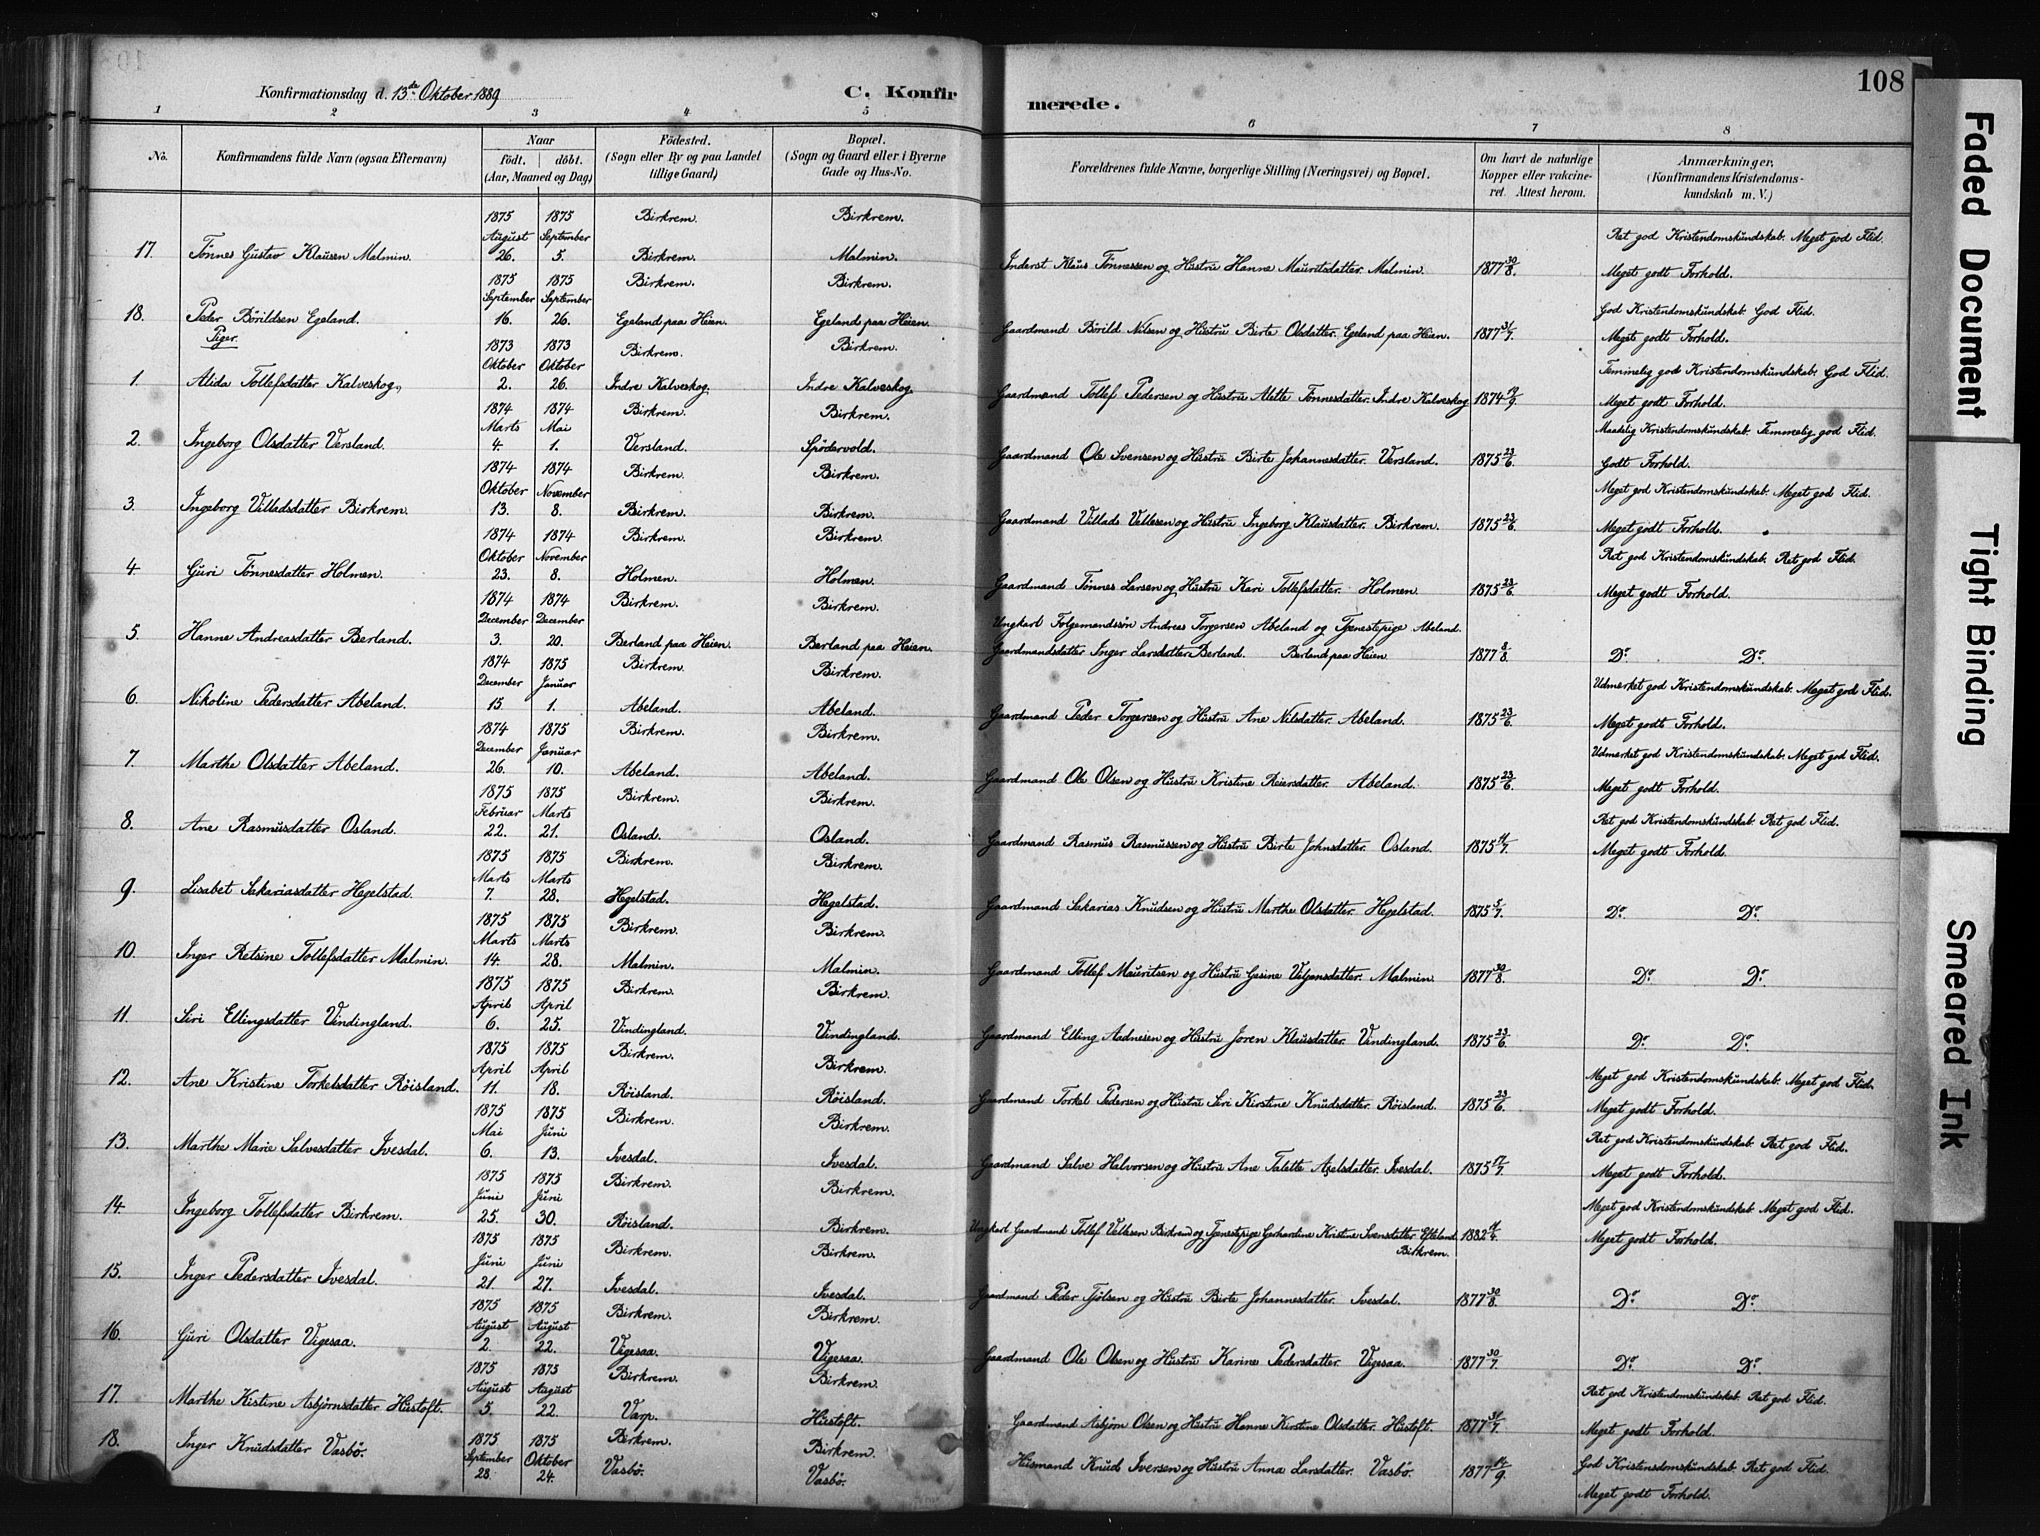 108
Konfirmationsdag d. 13de Oktober 1889
C. Konfirmerede.
1 2 3 4 5 6 7 8
No.
Konfirmandens fulde Navn (ogsaa Efternavn)
Naar
födt. döbt.
(Aar, Maaned og Dag)
Födested.
(Sogn eller By og paa Landet
tillige Gaard)
Bopæl.
(Sogn og Gaard eller i Byerne
Gade og Hus-No.
Forældrenes fulde Navne, borgerlige Stilling (Næringsvei) og Bopæl.
Om havt de naturlige
Kopper eller vakcine-
ret. Attest herom.
Anmærkninger,
(Konfirmandens Kristendoms-
kundskab m. V.)
1875 1875 Birkrem. Birkrem.
August September Ret god Kristendomskundskab. Meget god Flid.
17. Tønnes Gustav Klausen Malmin. 26. 5. Birkrem. Malmin. Inderst Klaus Tønnessen og Hustru Hanne Mauritsdatter. Malmin. 1877 30/8. Meget godt Forhold.
1875 1875 Birkrem. Birkrem.
September September God Kristendomskundskab. God Flid.
18. Peder Börildsen Egeland. 16. 26. Egeland paa Heien. Egeland paa Heien. Gaardmand Börild Nilsen og Hustru Birte Olsdatter. Egeland paa Heien. 1877 31/7. Meget godt Forhold.
Piger.
1873 1873 Birkrem. Birkrem.
Oktober Oktober Temmelig god Kristendomskundskab. God Flid.
1. Alida Tollefsdatter Kalveskog. 2. 26. Indre Kalveskog. Indre Kalveskog. Gaardmand Tollef Pedersen og Hustru Alette Tønnesdatter. Indre Kalveskog 1874 19/9. Meget godt Forhold.
1874 1874 Birkrem. Birkrem.
Marts Mai Maadelig Kristendomskundskab. Temmelig god Flid.
2. Ingeborg Olsdatter Versland. 4. 1. Versland. Spödervold. Gaardmand Ole Svensen og Hustru Birte Johannesdatter. Versland. 1875 23/6. Godt Forhold.
1874 1874 Birkrem. Birkrem.
Oktober November Meget god Kristendomskundskab. Meget god Flid.
3. Ingeborg Villadsdatter Birkrem. 13. 8. Birkrem. Birkrem. Gaardmand Villads Vellesen og Hustru Ingeborg Klausdatter. Birkrem. 1875 23/6. Meget godt Forhold.
1874 1874 Birkrem. Birkrem.
Oktober November Ret god Kristendomskundskab. Ret god Flid.
4. Guri Tønnesdatter Holmen. 23. 8. Holmen. Holmen. Gaardmand Tønnes Larsen og Hustru Kari Tollefsdatter. Holmen 1875 23/6. Meget godt Forhold.
1874 1874 Birkrem. Birkrem.
December December Ungkarl Folgemandssön Andreas Torgersen Abeland og Tjenestepige Abeland.
5. Hanne Andreasdatter Berland. 3. 20. Berland paa Heien. Berland paa Heien. Gaardmandsdatter Inger Larsdatter Berland. Berland paa Heien 1877 8/8. Do. Do.
1874 1875 Birkrem. Birkrem.
December Januar Udmerket god Kristendomskundskab. Meget god Flid.
6. Nikoline Pedersdatter Abeland. 15 1. Abeland. Abeland. Gaardmand Peder Torgersen og Hustru Ane Nilsdatter. Abeland. 1875 23/6. Meget godt Forhold.
1874 1875 Birkrem. Birkrem.
December Januar Udmerket god Kristendomskundskab. Meget god Flid.
7. Marthe Olsdatter Abeland. 26. 10. Abeland. Abeland. Gaardmand Ole Olsen og Hustru Kristine Reiersdatter. Abeland. 1875 23/6. Meget godt Forhold.
1875 1875 Birkrem. Birkrem.
Februar Marts Ret god Kristendomskundskab. Ret god Flid.
8. Ane Rasmusdatter Osland. 22. 21. Osland. Osland. Gaardmand Rasmus Rasmussen og Hustru Birte Johnsdatter. Osland. 1875 Meget godt Forhold.
1875 1875 Birkrem. Birkrem.
Marts Marts
9. Lisabet Sakariasdatter Hegelstad. 7. 28. Hegelstad. Hegelstad. Gaardmand Sakarias Knudsen og Hustru Marthe Olsdatter. Hegelstad. 1875 5/7. Do. Do.
1875 1875 Birkrem. Birkrem.
Marts Marts
10. Inger Retsine Tollefsdatter Malmin. 14. 28. Malmin. Malmin. Gaardmand Tollef Mauritsen og Hustru Gesine Malmin 1877 30/8. Do. Do.
1875 1875 Birkrem. Birkrem.
April April
11. Siri Ellingsdatter Vindingland. 6. 25. Vindingland. Vindingland. Gaardmand Elling Aadnesen og Hustru Joren Klausdatter. Vindingland. 1875 23/6. Do. Do.
1875 1875 Birkrem. Birkrem.
April April Meget god Kristendomskundskab. Meget god Flid.
12. Ane Kristine Torkelsdatter Röisland. 11. 18. Röisland. Röisland. Gaardmand Torkel Pedersen og Hustru Siri Kirstine Knudsdatter. Röisland. 1875 23/6. Meget godt Forhold.
1875 1875 Birkrem. Birkrem.
Mai Juni Ret god Kristendomskundskab. Ret god Flid.
13. Marthe Marie Salvesdatter Ivesdal. 6. 13. Ivesdal. Ivesdal. Gaardmand Salve Halvorsen og Hustru Ane Talette Axelsdatter. Ivesdal. 1875 17/7. Meget godt Forhold.
1875 1875 Birkrem. Birkrem.
Juni Juni Meget god Kristendomskundskab. Meget god Flid.
14. Ingeborg Tollefsdatter Birkrem. 25. 30. Röisland. Birkrem. Ungkarl Gaardmand Tollef Vellesen Birkrem og Tjenestepige Gerhardine Kristine Svensdatter Birkrem. 1882 Meget godt Forhold.
1875 1875 Birkrem. Birkrem.
Juni Juni
15. Inger Pedersdatter Ivesdal. 21. 27. Ivesdal. Ivesdal. Gaardmand Peder Tjölsen og Hustru Birte Johannesdatter. Ivesdal. 1877 30/8. Do. Do.
1875 1875 Birkrem. Birkrem.
August August
16. Guri Olsdatter Vigesaa. 2. 22. Vigesaa. Vigesaa. Gaardmand Ole Olsen og Hustru Karine Pedersdatter. Vigesaa. 1877 30/7. Do. Do.
1875 1875 Birkrem. Birkrem.
August August Ret god Kristendomskundskab. Ret god Flid.
17. Marthe Kistine Asbjørnsdatter Hustoft. 5. 22. Varp. Hustoft. Gaardmand Asbjørn Olsen og Hustru Hanne Kirstine Olsdatter. Hustoft. 1877 31/7. Meget godt Forhold.
1875 1875 Birkrem. Birkrem.
September Oktober God Kristensdomskundskab. Ret god Flid.
18. Inger Knudsdatter Vasbö. 28. 24. Vasbö. Vasbö. Husmand Knud Iversen og Hustru Anna Larsdatter. Vasbö. 1877 Meget godt Forhold.
Faded Document
Tight Binding
Smeared Ink